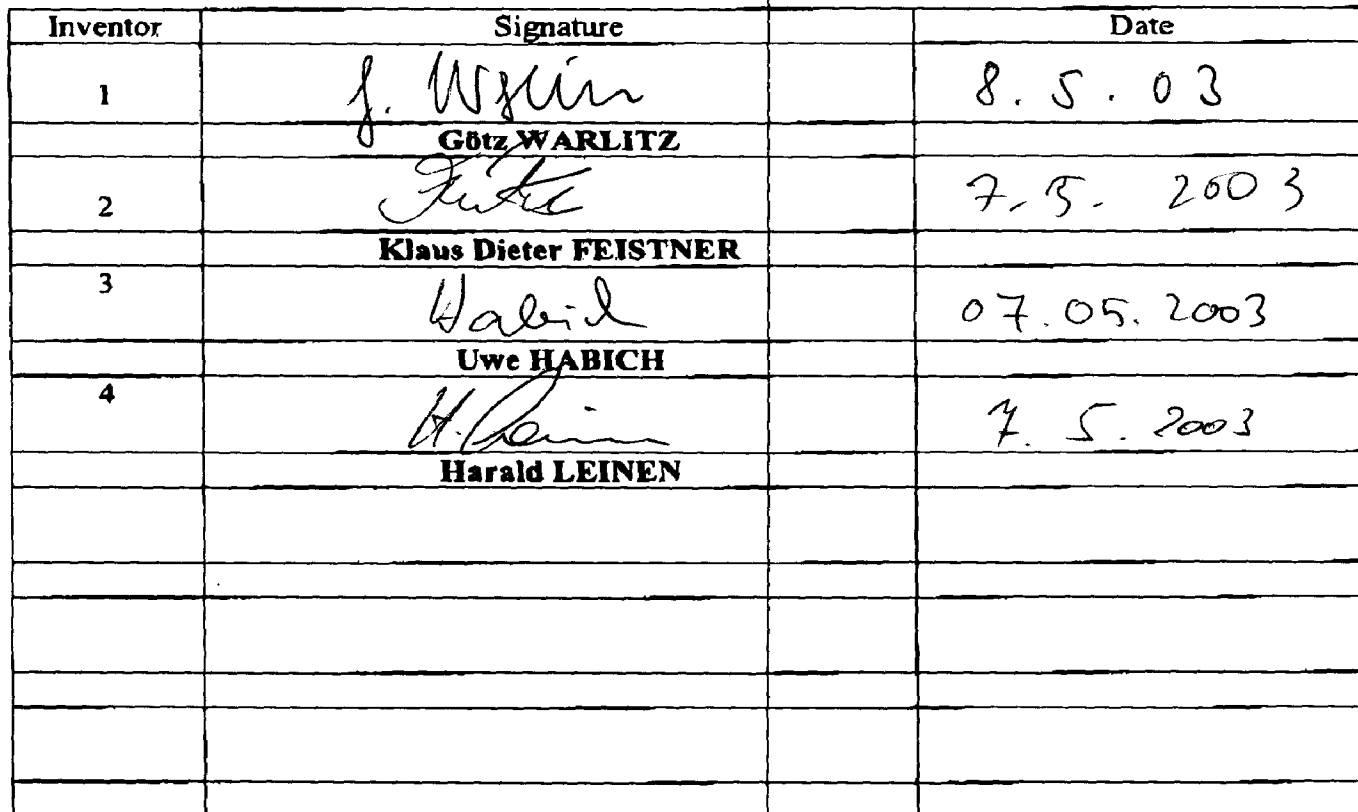 Inventor Signature Date
1 8. 5. 03
Götz WARLITZ
2 7. 5. 2003
Klaus Dieter FEISTNER
3 Habich 07.05.2003
Uwe HABICH
4 H. 7. 5. 2003
Harald LEINEN